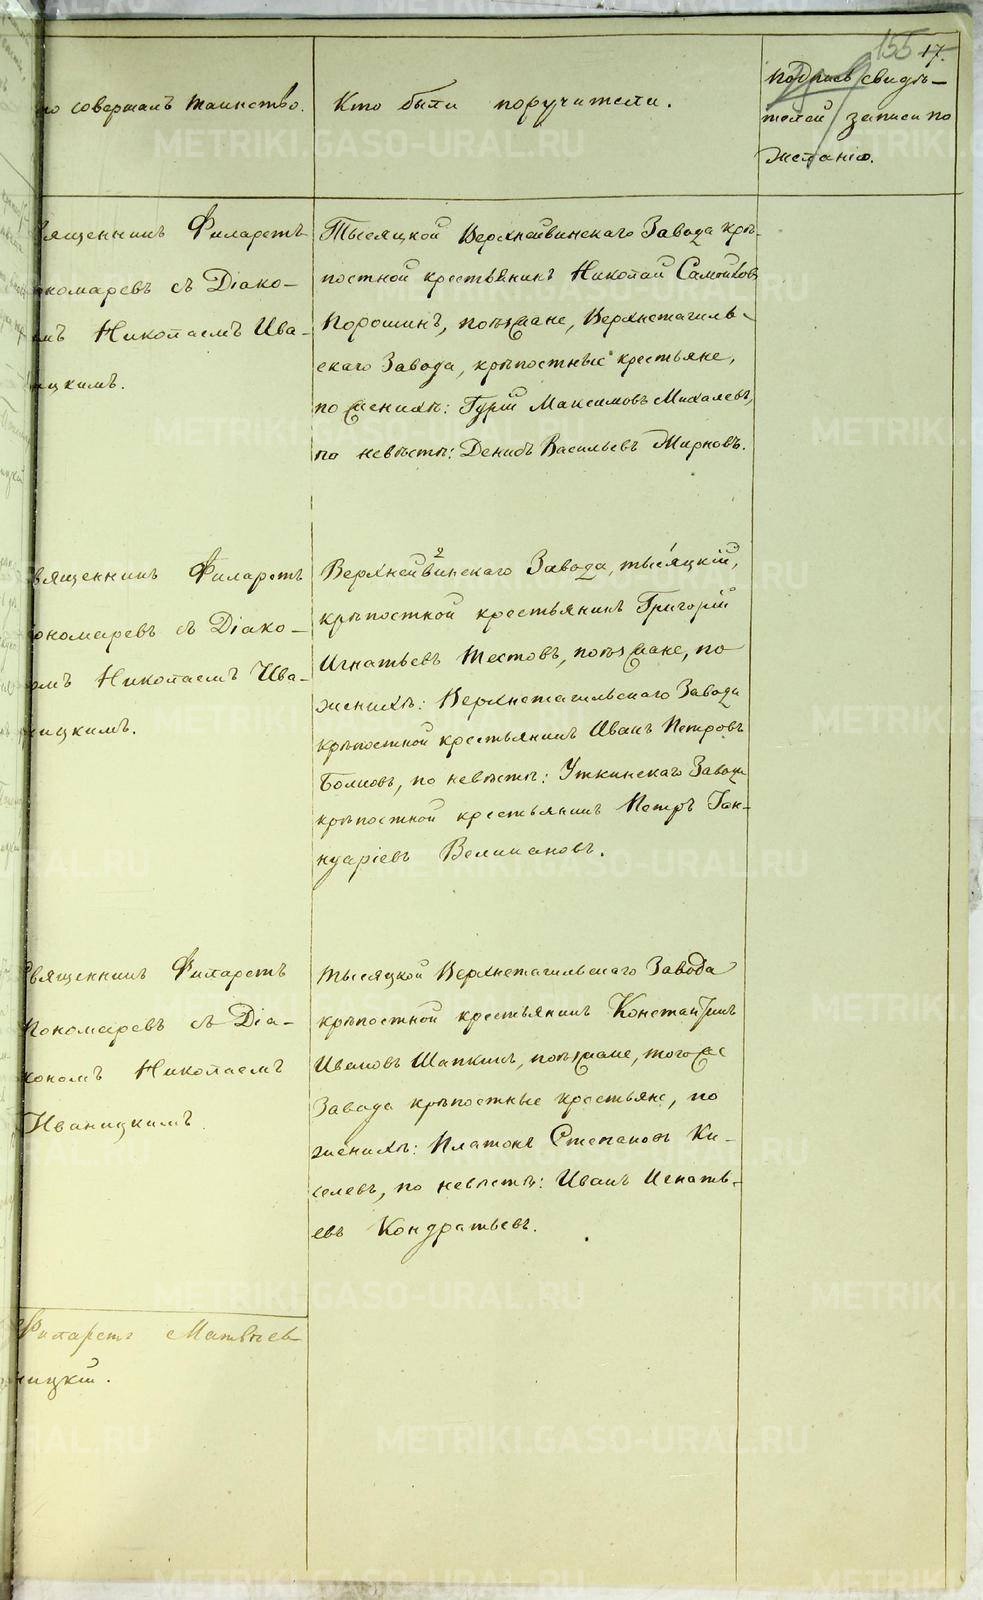 155 17.
то совершалъ таинство.
Кто были поручители.
Подпись свидѣ-
телей записи по
желанію.
вященникъ Филаретъ
ономаревъ съ Діако-
мъ Николаемъ Ива-
ицкимъ.
Тысяцкой Верхнейвинскаго Завода крѣ-
постной крестьянинъ Николай Самойловъ
Порошинъ, поѣзжане, Верхнетагиль-
скаго Завода, крѣпостные крестьяне,
по женихѣ: Гурій Максимовъ Михалевъ,
по невѣстѣ: Денисъ Васильевъ Мирновъ.
вященникъ Филаретъ
ономаревъ съ Діако-
омъ Николаемъ Ива-
ницкимъ.
Верхнейвинскаго Завода, тысяцкій,
крѣпостной крестьянинъ Григорій
Игнатьевъ Тестовъ, поѣзжане, по
женихѣ: Верхнетагильскаго Завода
крѣпостной крестьянинъ Иванъ Петровъ
по невѣстѣ: Уткинскаго Завода
крѣпостной крестьянинъ Петръ Ган-
нуаріевъ Великановъ.
Священникъ Филаретъ
Пономаревъ съ Діа-
кономъ Николаемъ
Иваницкимъ.
Тысяцкой Верхнетагильскаго Завода
крѣпостной крестьянинъ Константинъ
Ивановъ Шапкинъ, поѣзжане, того же
Завода крѣпостные крестьяне, по
женихѣ: Платонъ Степановъ Ки-
селевъ, по невѣстѣ: Иванъ Игнать-
евъ Кондратьевъ.
Филаретъ Матвѣев
ницкій.
METRIKI.GASO-URAL.RU